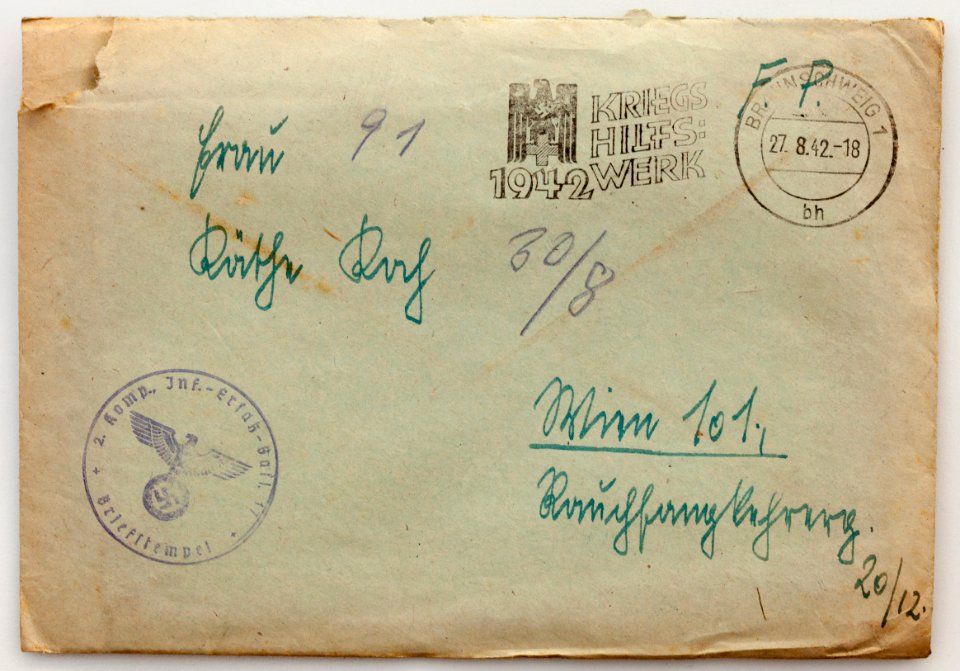 F. P.
BRAUNSCHWEIG 1
27. 8.42.-18
bh
KRIEGS
HILFS:
WERK
1942
Frau
91
Käthe Koch
30/8
Wien 101.,
Rauchfangkehrerg.
20/12.
2. Komp., Inf.-Ersatz-Batl. 17
+ Briefstempel +